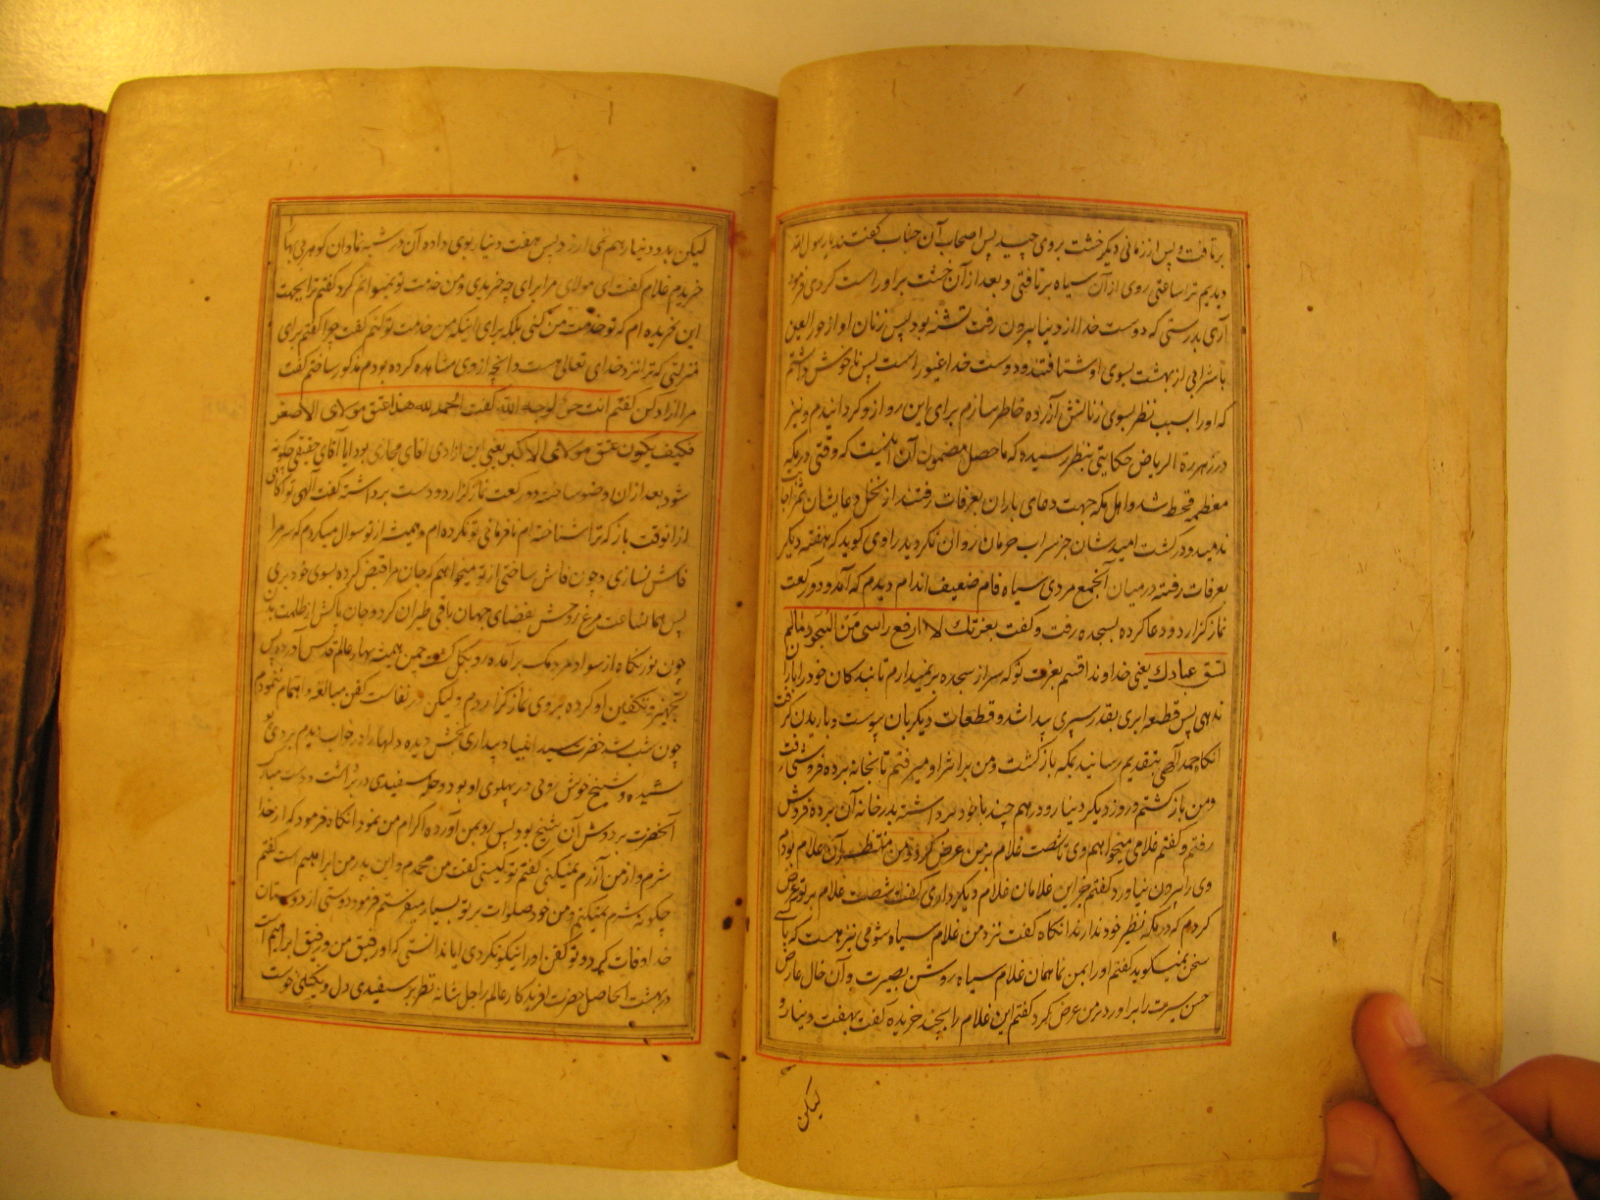 برتافت و پس از زمانی دیگر خشت بروی چید پس اصحاب آن جناب گفتند یا رسول الله
دیدیم ترا ساعتی روی از آن سیاه برتافتی و بعد از آن خشت بر او راست کردی فرمود
آری بدرستی که دوست خدا از دنیا بیرون رفت تشنه بود پس زنان او از حور العین
با شرابی از بهشت بسوی او شتافتند و دوست خدا غیور است پس ناخوش داشتم
که او را بسبب نظر بسوی زنانش آزرده خاطر سازم برای این رو از و گردانیدم و نیز
در زهرة الریاض حکایتی بنظر رسیده که ماحصل مضمون آن اینست که وقتی در مکه
معظمه قحط شد و اهل مکه جهت دعای باران بعرفات رفتند از نخل دعایشان ثمر اجا
ندمید و در کشت امیدشان جز سراب حرمان روان نکردید راوی کوید که بهفته دیگر
بعرفات رفته در میان آنجمع مردی سیاه فام ضعیف اندام دیدم که آمد و دو رکعت
نماز گزارد و دعا کرده بسجده رفت و گفت بعزتك لا ارفع راسی من السجود مالم
تسق عبادك یعنی خداوندا قسم بعزت تو که سر از سجده بر نمیدارم تا بندکان خود را باران
ندهی پس قطعه ابری بقدر سپری پیدا شد و قطعات دیگر بان پیوست و باریدن گرفت
آنکاه حمد الهی بتقدیم رسانید بمکه بازگشت و من بر اثر او میرفتم تا بخانه برده فروشی رفت
و من بازگشتم و روز دیگر دینار و درهم چند با خود برداشته بدر خانه آن برده فروش
رفتم و گفتم غلامی میخواهم وی تا شصت غلام بر من عرض کرد و من منتظر آن غلام بودم
وی را بیرون نیاورد گفتم جز این غلامان غلام دیگر داری گفت شصت غلام بر تو عرض
کردم که در مکه نظیر خود ندارند آنکاه گفت نزد من غلام سیاه شومی نیز هست که با کسی
سخن نمیکوید گفتم او را بمن نما همان غلام سیاه روشن بصیرت و آن خال عارض
حسن سیرت را براورد و بر من عرض کرد گفتم این غلام را بچند خریده گفت بهفت دینار و
لیکن
لیکن بدو دینار هم نمی ارزد پس هفت دینار بوی داده آن در شبه نما و ان کوهر بی بها
خریدم غلام گفت ای مولای مرا برای چه خریدی و من خدمت تو نمیتوانم کرد گفتم ترا بجهت
این نخریده ام که تو خدمت من کنی بلکه برای اینکه من خدمت تو کنم گفت چرا گفتم برای
منزلتی که ترا نزد خدای تعالی هست و انچه از وی مشاهده کرده بودم مذکور ساختم گفت
مرا آزاد کن گفتم انت حر لوجه الله گفت الحمد لله هذا عتق مولای الاصغر
فکیف یکون عتق مولای الاکبر یعنی این ازادی اقای مجازی بود ایا آقای حقیقی چکونه
شود بعد از ان وضو ساخته دو رکعت نماز گزارد و دست برداشته گفت الهی تو آکاهی
از انوقت باز که ترا شناخته ام نافرمانی تو نکرده ام و همیشه از تو سوال میکردم که سر مرا
فاش نسازی و چون فاش ساختی از تو میخواهم که جان مرا قبض کرده بسوی خود بری
پس هماساعت مرغ روحش بفضای جهان باقی طیران کرد و جان پاکش از ظلمت بدن
چون نور نگاه از سواد مردمک برامده رو بکل گشت چمن همیشه بهار عالم قدس آورد پس
تجهیز و تکفین او کرده بر وی نماز گزاردم و لیکن در نفاست کفن مبالغه و اهتمام ننمودم
چون شب شد حضرت سید انبیا و بیداری بخش دیده دلها را در خواب دیدم بردی
پوشیده و شیخ خوش رویی در پهلوی او بود و حله سفیدی در بر داشت و دست مبارک
آنحضرت بر دوش آن شیخ بود پس رو بمن آورده اکرام من نمود آنکاه فرمود که از خدا
شرم و از من آزرم نمیکنی گفتم تو کیستی گفت من محمدم و این پدر من ابراهیم است گفتم
چکونه شرم نمیکنم و من خود صلوات بر تو بسیار میفرستم فرمود دوستی از دوستان
خدا وفات کرد و تو کفن او را نیکو نکردی ایا ندانستی که او رفیق من و رفیق ابراهیم است
در بهشت الحاصل حضرت افریدکار عالم را جل شانه نظر بر سفیدی دل و یکجهتی خوست